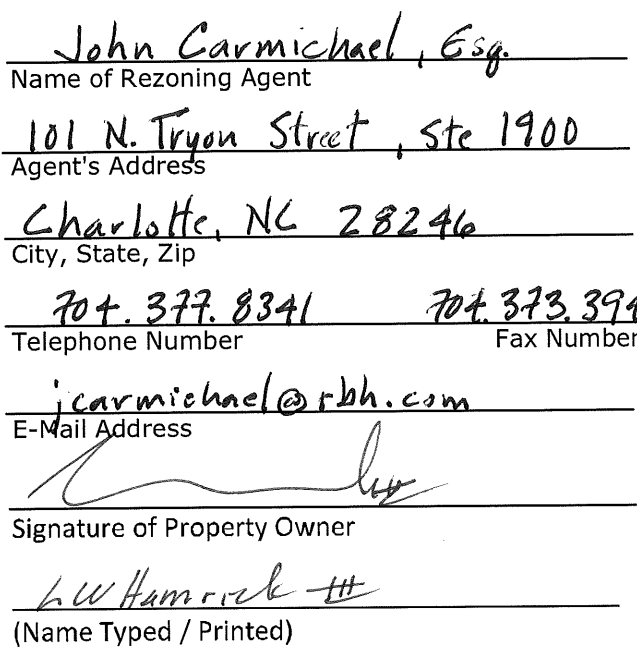 John Carmichael, Esq.
Name of Rezoning Agent
101 N. Tryon Street, Ste 1900
Agent's Address
Charlotte, NC 28246
City, State, Zip
704.377.8341 704.373.394
Telephone Number Fax Number
jcarmichael@rbh.com
E-Mail Address
Signature of Property Owner
LW Hamrick III
(Name Typed / Printed)